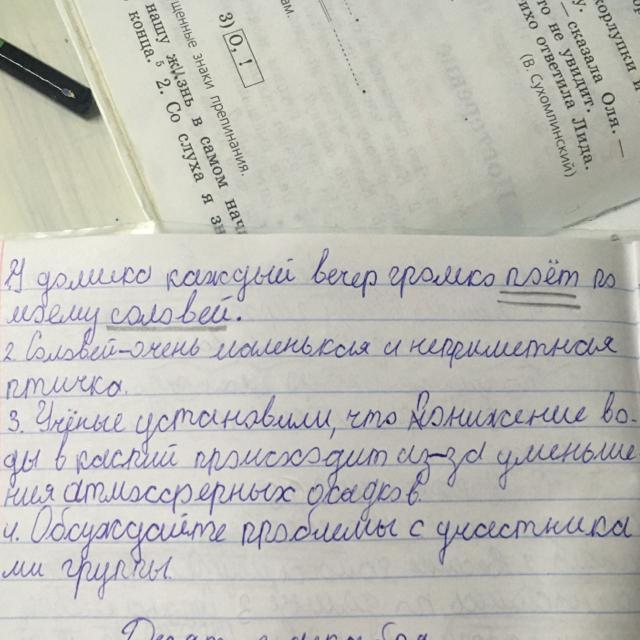 корлупки и
— сказала Оля. —
то не увидит.
ихо ответила Лида.
(В. Сухомлинский)
3) О, !
щенные знаки препинания.
нашу жизнь в самом нач
конца. 5 2. Со слуха я зн
У домика каждый вечер громко поёт по
моему соловей.
2. Соловей-очень маленькая и неприметная
птичка.
3. Учёные установили, что понижение во-
ды в каспий происходит из-за уменьше
ния атмоссферных осадков.
4. Обсуждайте проблемы с участника
ми группы.